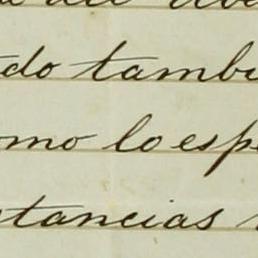 do tambi
omo lo esp
stancias